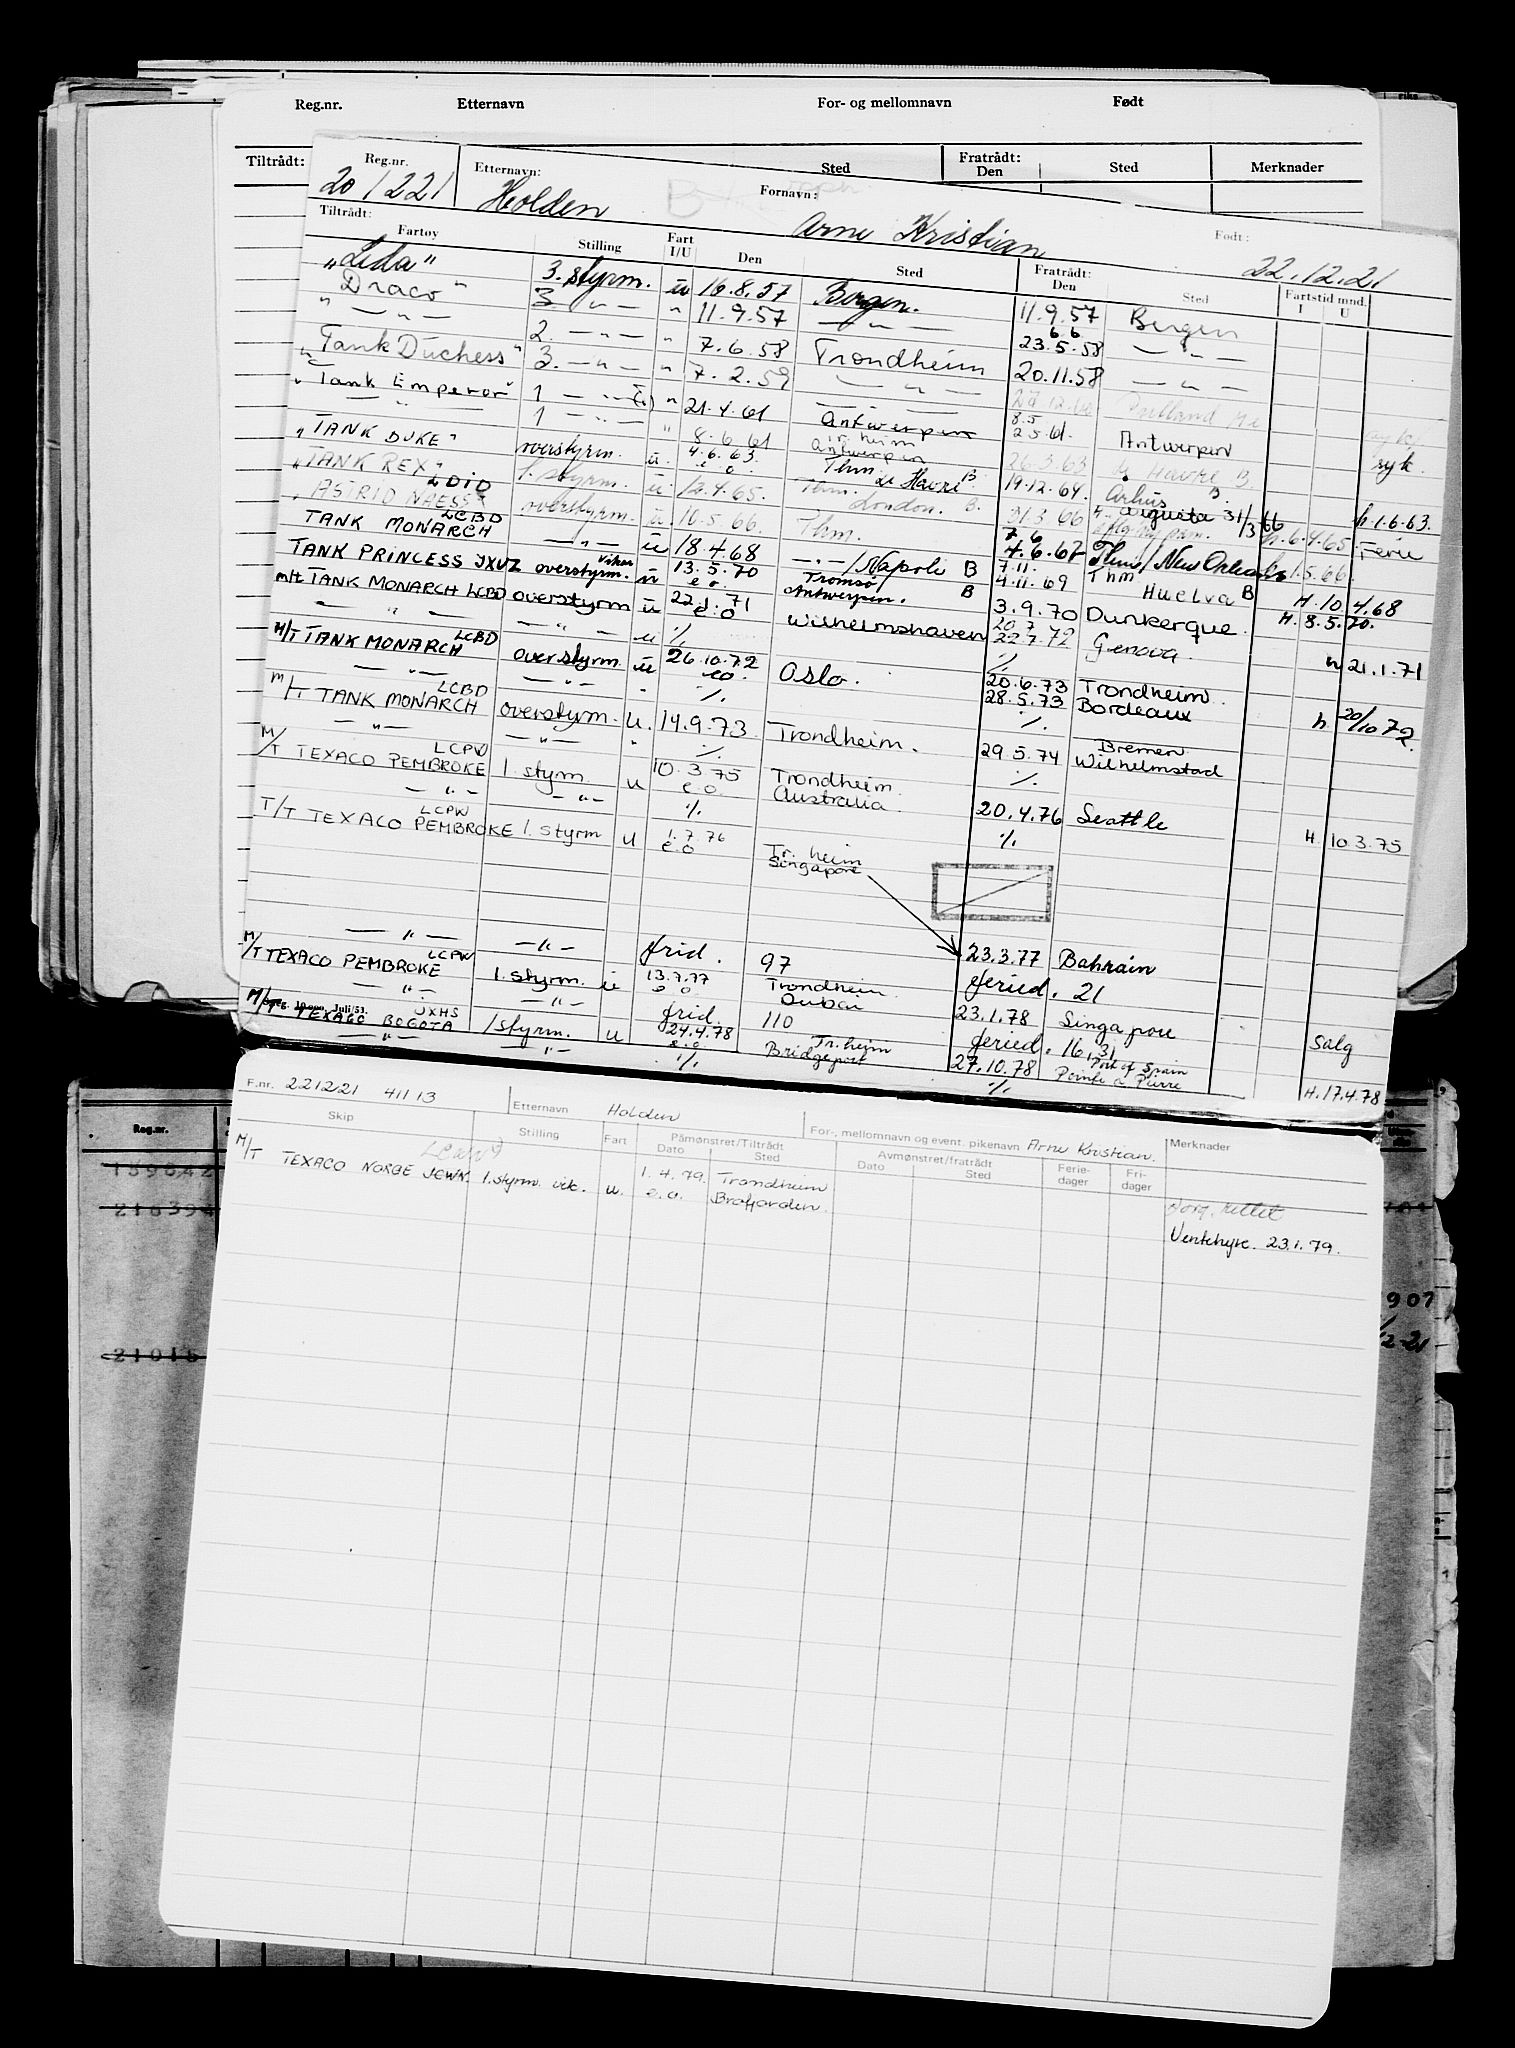 Reg.nr. Etternavn For- og mellomnavn Født
Tiltrådt: Sted Fratrådt: Den Sted Merknader
Reg.nr. 20/221 Etternavn: Holden Fornavn: Arne Kristian Født: 22.12.21
Tiltrådt: Fratrådt:
Fartøy Stilling Fart I/U Den Sted Den Sted Fartstid mnd. I U
"Leda" 3. styrm. u 16.8.57 Bergen. 11.9.57 Bergen
" Draco " 3 — " — " 11.9.57 — " — 6.6 23.5.58 — " —
— " — 2. — " — " 7.6.58 Trondheim 20.11.58 — " —
" Tank Duchess " 3. — " — " 7.2.59 — " —
" Tank Emperor " 1 — " — " 21.4.61 Antwerpen 8.5 2.5.61. Antwerpen
— " — 1 — " — " 8.6.61 Tr.heim Antwerpen 26.3.63 Le Havre B. syk.
" TANK DUKE " overstyrm. u. 4.6.63. e.o. Thm. Le Havre B 19.12.64. Arhus B. h.1.6.63.
" TANK REX " LDID 1. styrm. u. 12.4.65. Thm. London. B. 31.3.66 Augusta 31/3 66 h.6.4.65. Ferie
" ASTRID NAESS " overstyrm. u. 10.5.66. Thm. 7.6 4.6.67 Thm/New Orleans h.1.5.66.
TANK MONARCH LCBD — " — u 18.4.68 — " — /Napoli B 7.11. 4.11.69 Thm Huelva B H.10.4.68
TANK PRINCESS JXVZ overstyrm. vikar u 13.5.70 e.o. Tromsø/ Antwerpen. B 3.9.70 Dunkerque. H.8.5.70.
m/t TANK MONARCH LCBD overstyrm u 22.1.71 e.o Wilhelmshaven 20.7 22.7.72 Genova. h 21.1.71
— " — — " — u ./. ./.
M/T TANK MONARCH LCBD overstyrm. u 26.10.72 e.o. Oslo. 20.6.73 Trondheim. 28.5.73 Bordeaux h 20/10 72.
— " — — " — " ./. ./.
M/T TANK MONARCH LCBD overstyrm. u. 14.9.73 Trondheim. 29.5.74 Bremen. Wilhelmstad
— " — — " — " ./. ./.
M/T TEXACO PEMBROKE LCPW 1. styrm. u 10.3.75 e.o. Trondheim. Australia. 20.4.76 Seattle H. 10.3.75
— " — — " — ./. ./.
T/T TEXACO PEMBROKE LCPW 1. styrm u 1.7.76 e.o Tr.heim Singapore
23.3.77 Bahrain
— " — — " — frid. 97 feried. 21
M/T TEXACO PEMBROKE LCPW 1. styrm. u 13.7.77 e.o. Trondheim. Dubai 23.1.78 Singapore salg
— " — — " — frid. 110 feried. 16, 31
M/T TEXACO BOGOTA JXHS 1 styrm. u 24.4.78 e.o Tr.heim Bridgeport 27.10.78 Port of Spain Pointe a Pierre H.17.4.78
— " — — " — ./. ./.
Juli/53.
F.nr. 221221 41113 Etternavn Holden For-, mellomnavn og event. pikenavn Arne Kristian. Merknader
Skip Stilling Fart Påmønstret/Tiltrådt Dato Sted Avmønstret/fratrådt Dato Sted Ferie- dager Fri- dager
M/T TEXACO NORGE JCWN 1. styrm. vik. u. 1.4.79. e.o. Trondheim Brofjorden.
Ventehyre. 23.1.79.
Reg.nr.
159642
216394
21015
907